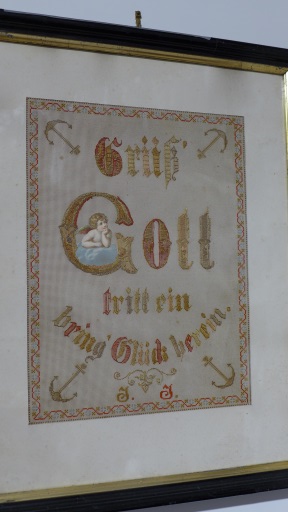 Grüß'
Gott
tritt ein
bring' Glück herein.
J. J.